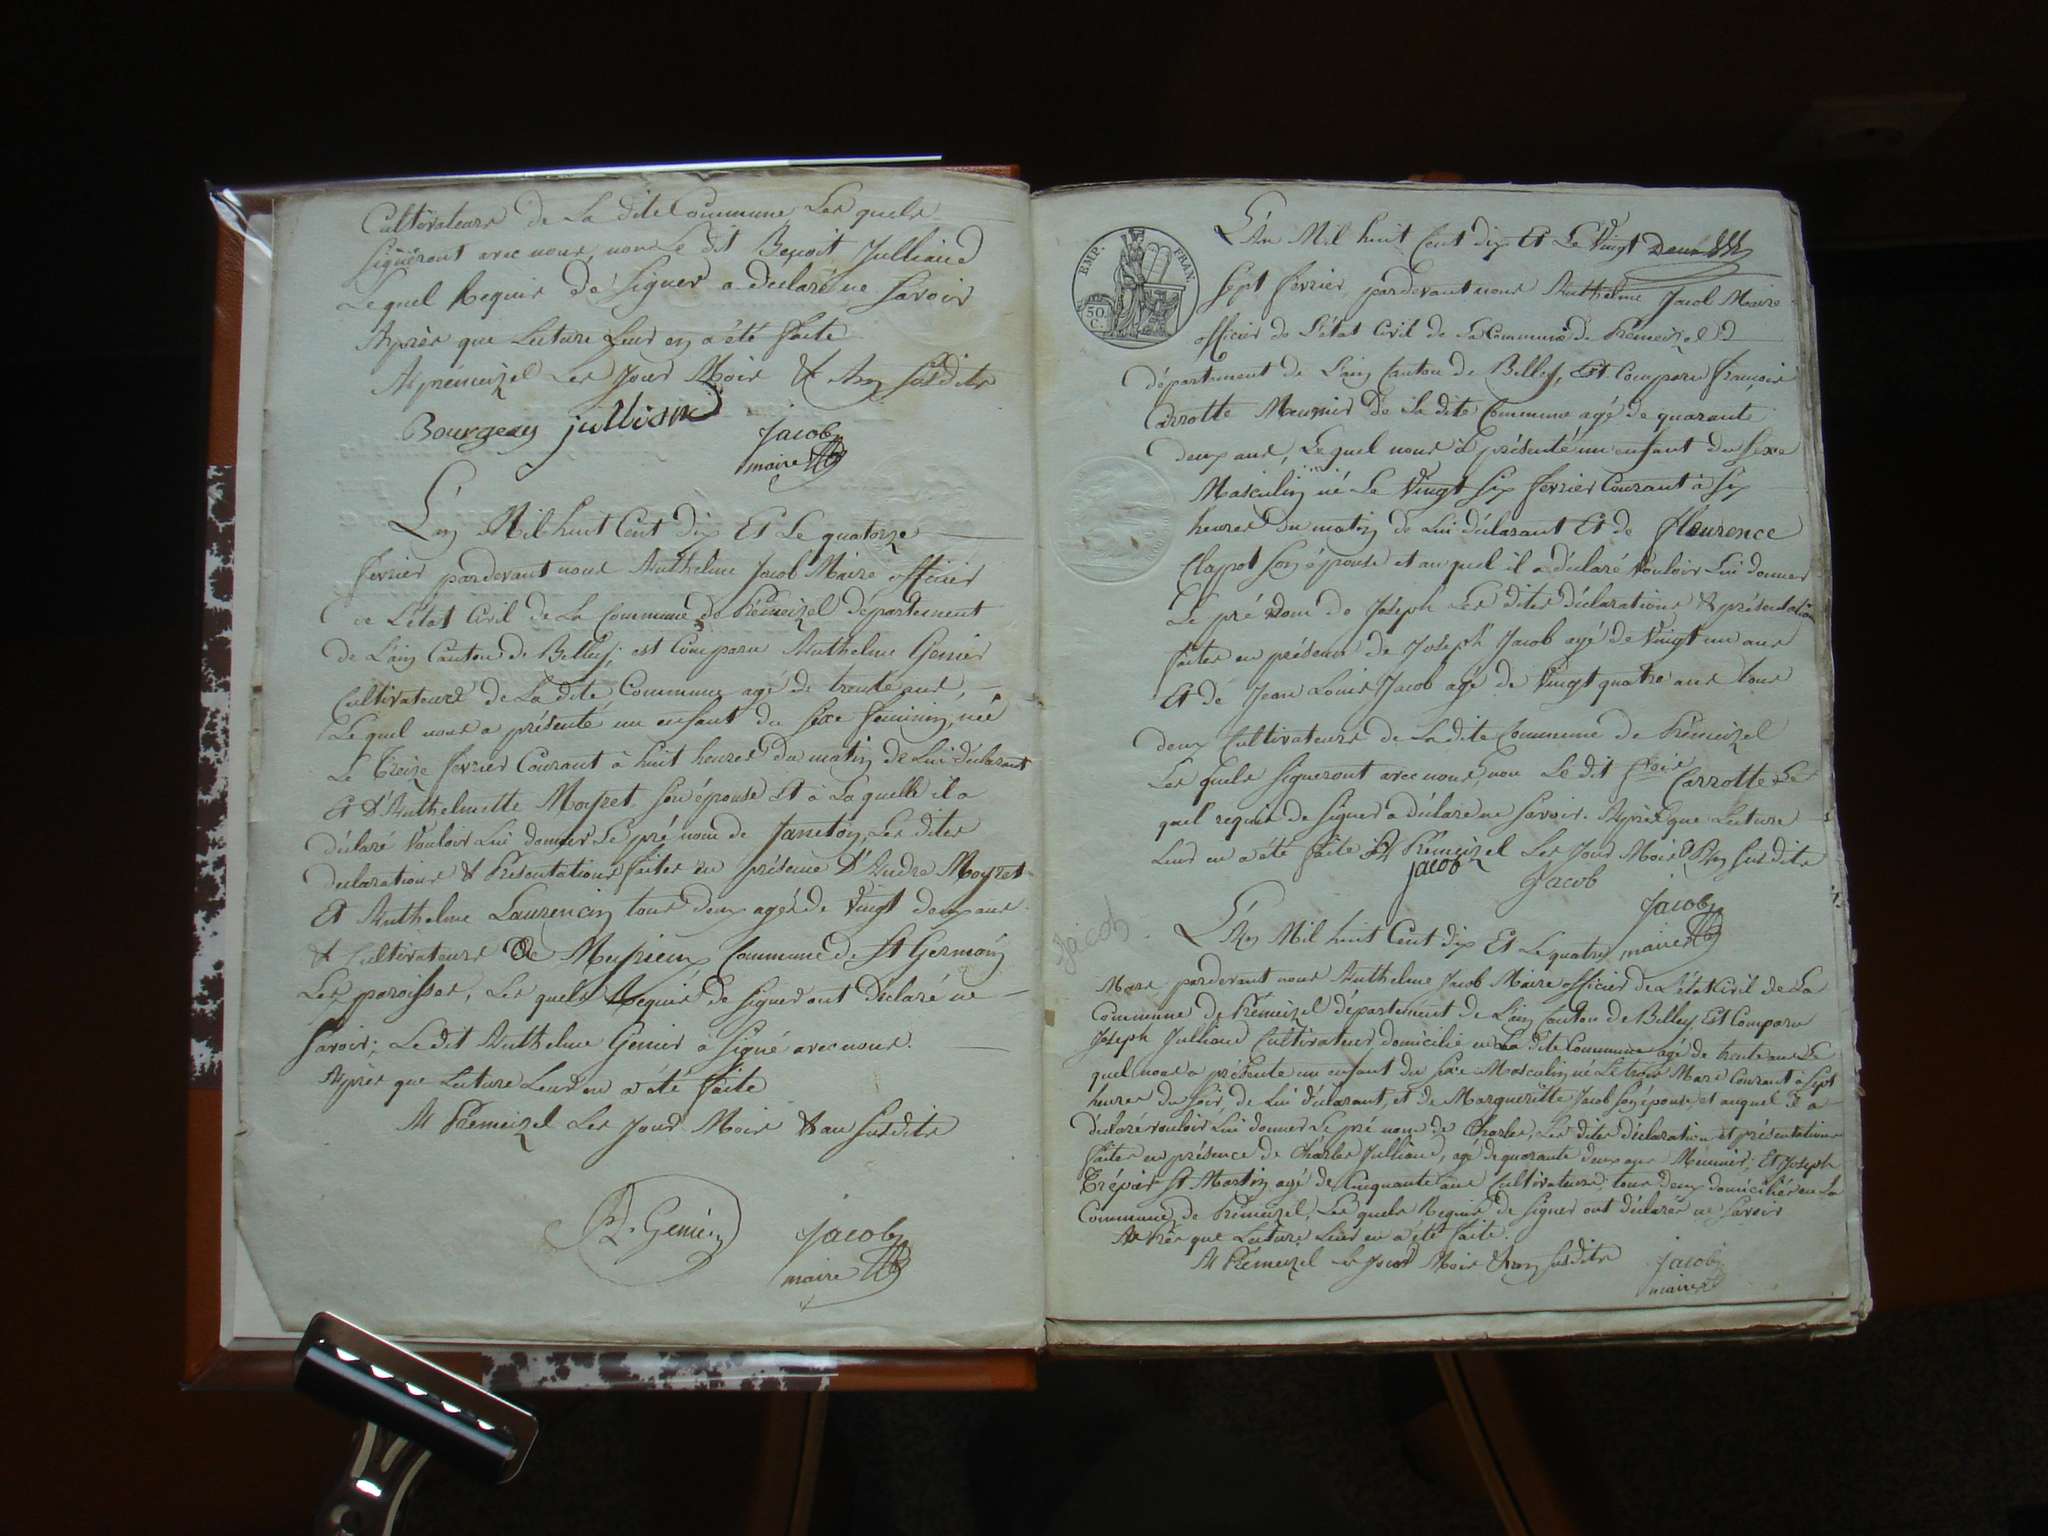 Cultivateurs de La dite Commune Les quels
signeront avec nous, non Le dit Benoit Julliand
Le quel Requis de Signer a declaré ne Savoir
Après que Lecture Leur en a été faite
A prémeizel Les Jour Mois & An susdits
Bourgeay julliand
Jacob
maire
L'an Mil huit Cent dix Et Le quatorze
fevrier pardevant nous Anthelme Jacob Maire officier
de L'état Civil de La Commune de Prémeizel département
de L'ain Canton de Belley, est Comparu Anthelme Genier
Cultivateur de La dite Commune agé de trente ans,
Le quel nous a présenté un enfant du sexe feminin, née
Le treize fevrier Courant à huit heures du matin de Lui déclarant
Et d'Anthelmette Moyret son épouse Et à Laquelle il a
déclaré Vouloir Lui donner Le pré nom de Janeton, Les dites
declarations & Présentations faites en présence d'Andre Moyret
Et Anthelme Laurencin tous deux agés de Vingt deux ans
& Cultivateurs de Meyrieux Commune de St Germain
Les paroisses, Les quels Requis de signer ont déclaré ne
Savoir; Le dit Anthelme Genier à signé avec nous.
Après que Lecture Leur en a été faite
A Prémeizel Les Jour Mois & an susdits
Genier
Jacob
maire
EMP. FRAN.
50.
C.
L'An Mil huit Cent dix Et Le Vingt
Sept fevrier pardevant nous Anthelme Jacob Maire
officier de L'état Civil de La Commune de Prémeizel
département de L'ain Canton de Belley, Est Comparu françois
Carrotte Meunier de La dite Commune agé de quarante
deux ans, Lequel nous à présenté un enfant du sexe
Masculin né Le Vingt Six fevrier Courant à Six
heures du matin de Lui déclarant Et de fleurence
Clapot son épouse et au quel il a déclaré Vouloir Lui donner
Le pré nom de Joseph Les dites déclarations & présentations
faites en présence de Joseph Jacob agé de Vingt un ans
Et de Jean Louis Jacob agé de Vingt quatre ans tous
deux Cultivateurs de La dite Commune de Prémeizel
Les quels signeront avec nous, non Le dit fcois Carrotte Le
quel requis de signer a déclaré ne Savoir. Après que Lecture
Leur en a été faite A Prémeizel Les Jour Mois & An susdits
jacob Jacob Jacob
maire
Jacob
L'An Mil huit Cent dix Et Le quatre
Mars pardevant nous Anthelme Jacob Maire officier de L'état Civil de La
Commune de Prémeizel département de L'ain Canton de Belley, Est Comparu
Joseph Julliand Cultivateur domicilié en La dite Commune agé de trente ans Le
quel nous a présenté un enfant du sexe Masculin né Le trois Mars Courant à Sept
heures du Soir, de Lui déclarant, et de Margueritte Jacob son épouse, et auquel il a
déclaré vouloir Lui donner Le pré nom de Charles, Les dites déclaration et présentations
faites en présence de Charles Julliand, agé de quarante deux ans Meunier, Et Joseph
St Martin agé de Cinquante ans Cultivateur, tous deux domiciliés en La
Commune de Prémeizel, Les quels Requis de signer ont déclarés ne Savoir
Après que Lecture Leur en a été faite.
A Prémeizel Les Jour Mois & an susdits
Jacob
maire